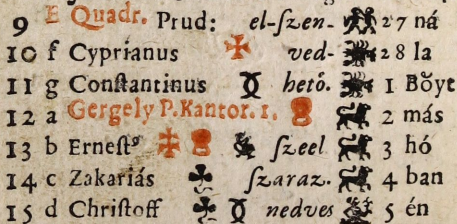 9 E Quadr. Prud: el-ſzen- 27 ná
10 f Cyprianus ved- 28 la
11 g Conſtantinus hetó. 1 Bőyt
12 a Gergely P. Kantor. 1. 2 más
13 b Erneſtꝰ ſzeel 3 hó
14 c Zakariás ſzaraz. 4 ban
15 d Chriſtoff nedves 5 én